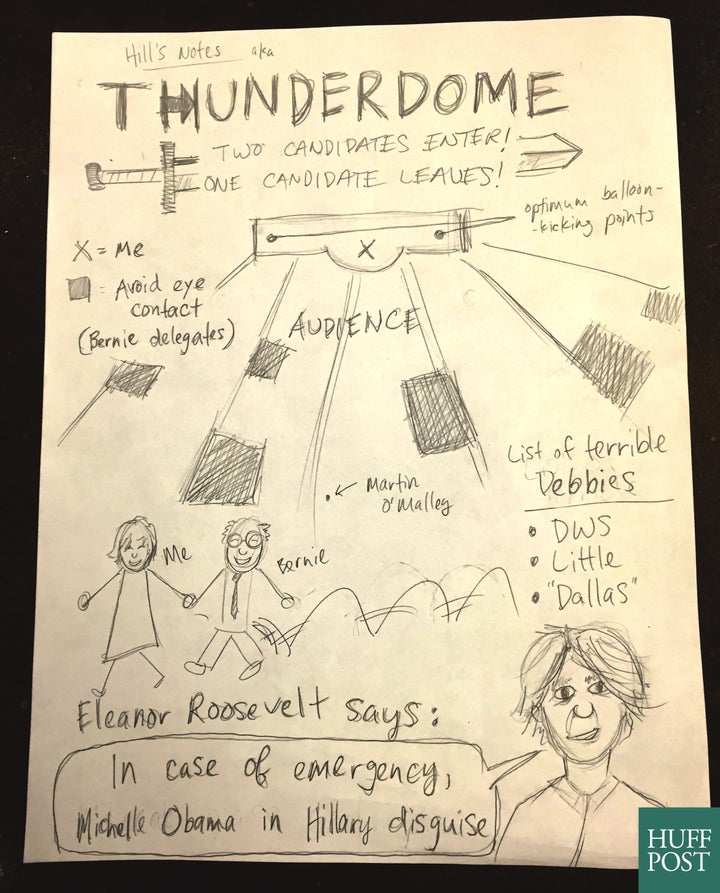 Hill's Notes aka
THUNDERDOME
TWO CANDIDATES ENTER!
ONE CANDIDATE LEAVES!
optimum balloon-
-kicking points
X = Me
X
= Avoid eye
contact
(Bernie delegates)
AUDIENCE
Martin
O'Malley
List of terrible
Debbies
• DWS
• Little
• "Dallas"
Me
Bernie
Eleanor Roosevelt says:
In case of emergency,
Michelle Obama in Hillary disguise
HUFF
POST